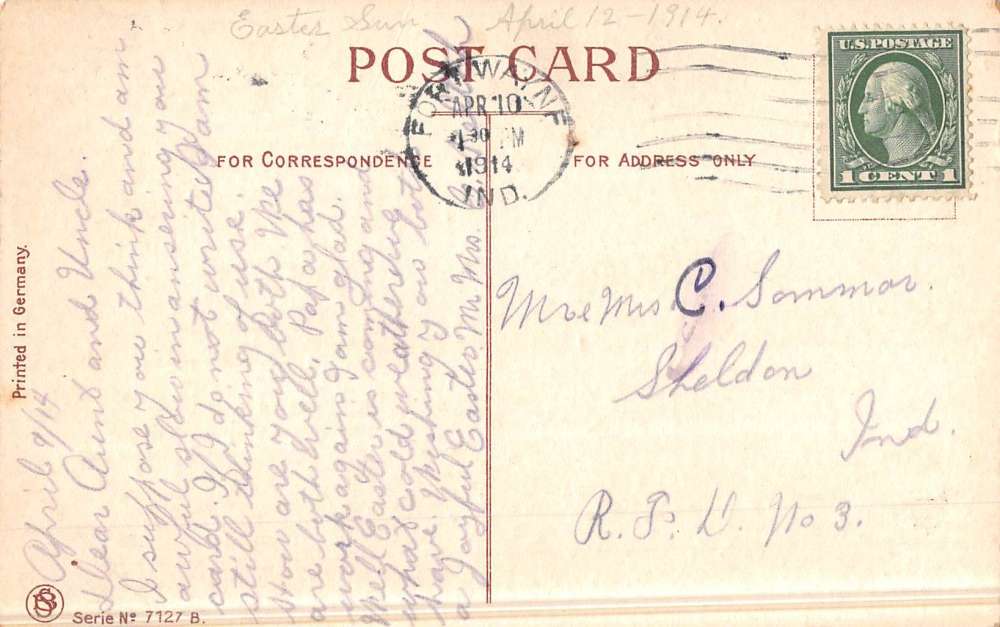 Easter Sun April 12-1914.
POST CARD
FORT WAYNE
APR 10
1914
IND.
U.S. POSTAGE
1 CENT 1
FOR CORRESPONDENCE
FOR ADDRESS ONLY
Printed in Germany.
April 9/14
Dear Aunt and Uncle.
I suppose you think and am
awful slow in answering your
card. If I do not write I am
still thinking of use.
How are you both We
are both well. Papa has
work again I am glad.
Well Easter is coming and
what cold weather
have. Wishing you both
a Joyful Easter Mr Mrs.
Mr & Mrs C. Sommar.
Sheldon
Ind.
R. F. D. No 3.
Serie No 7127 B.